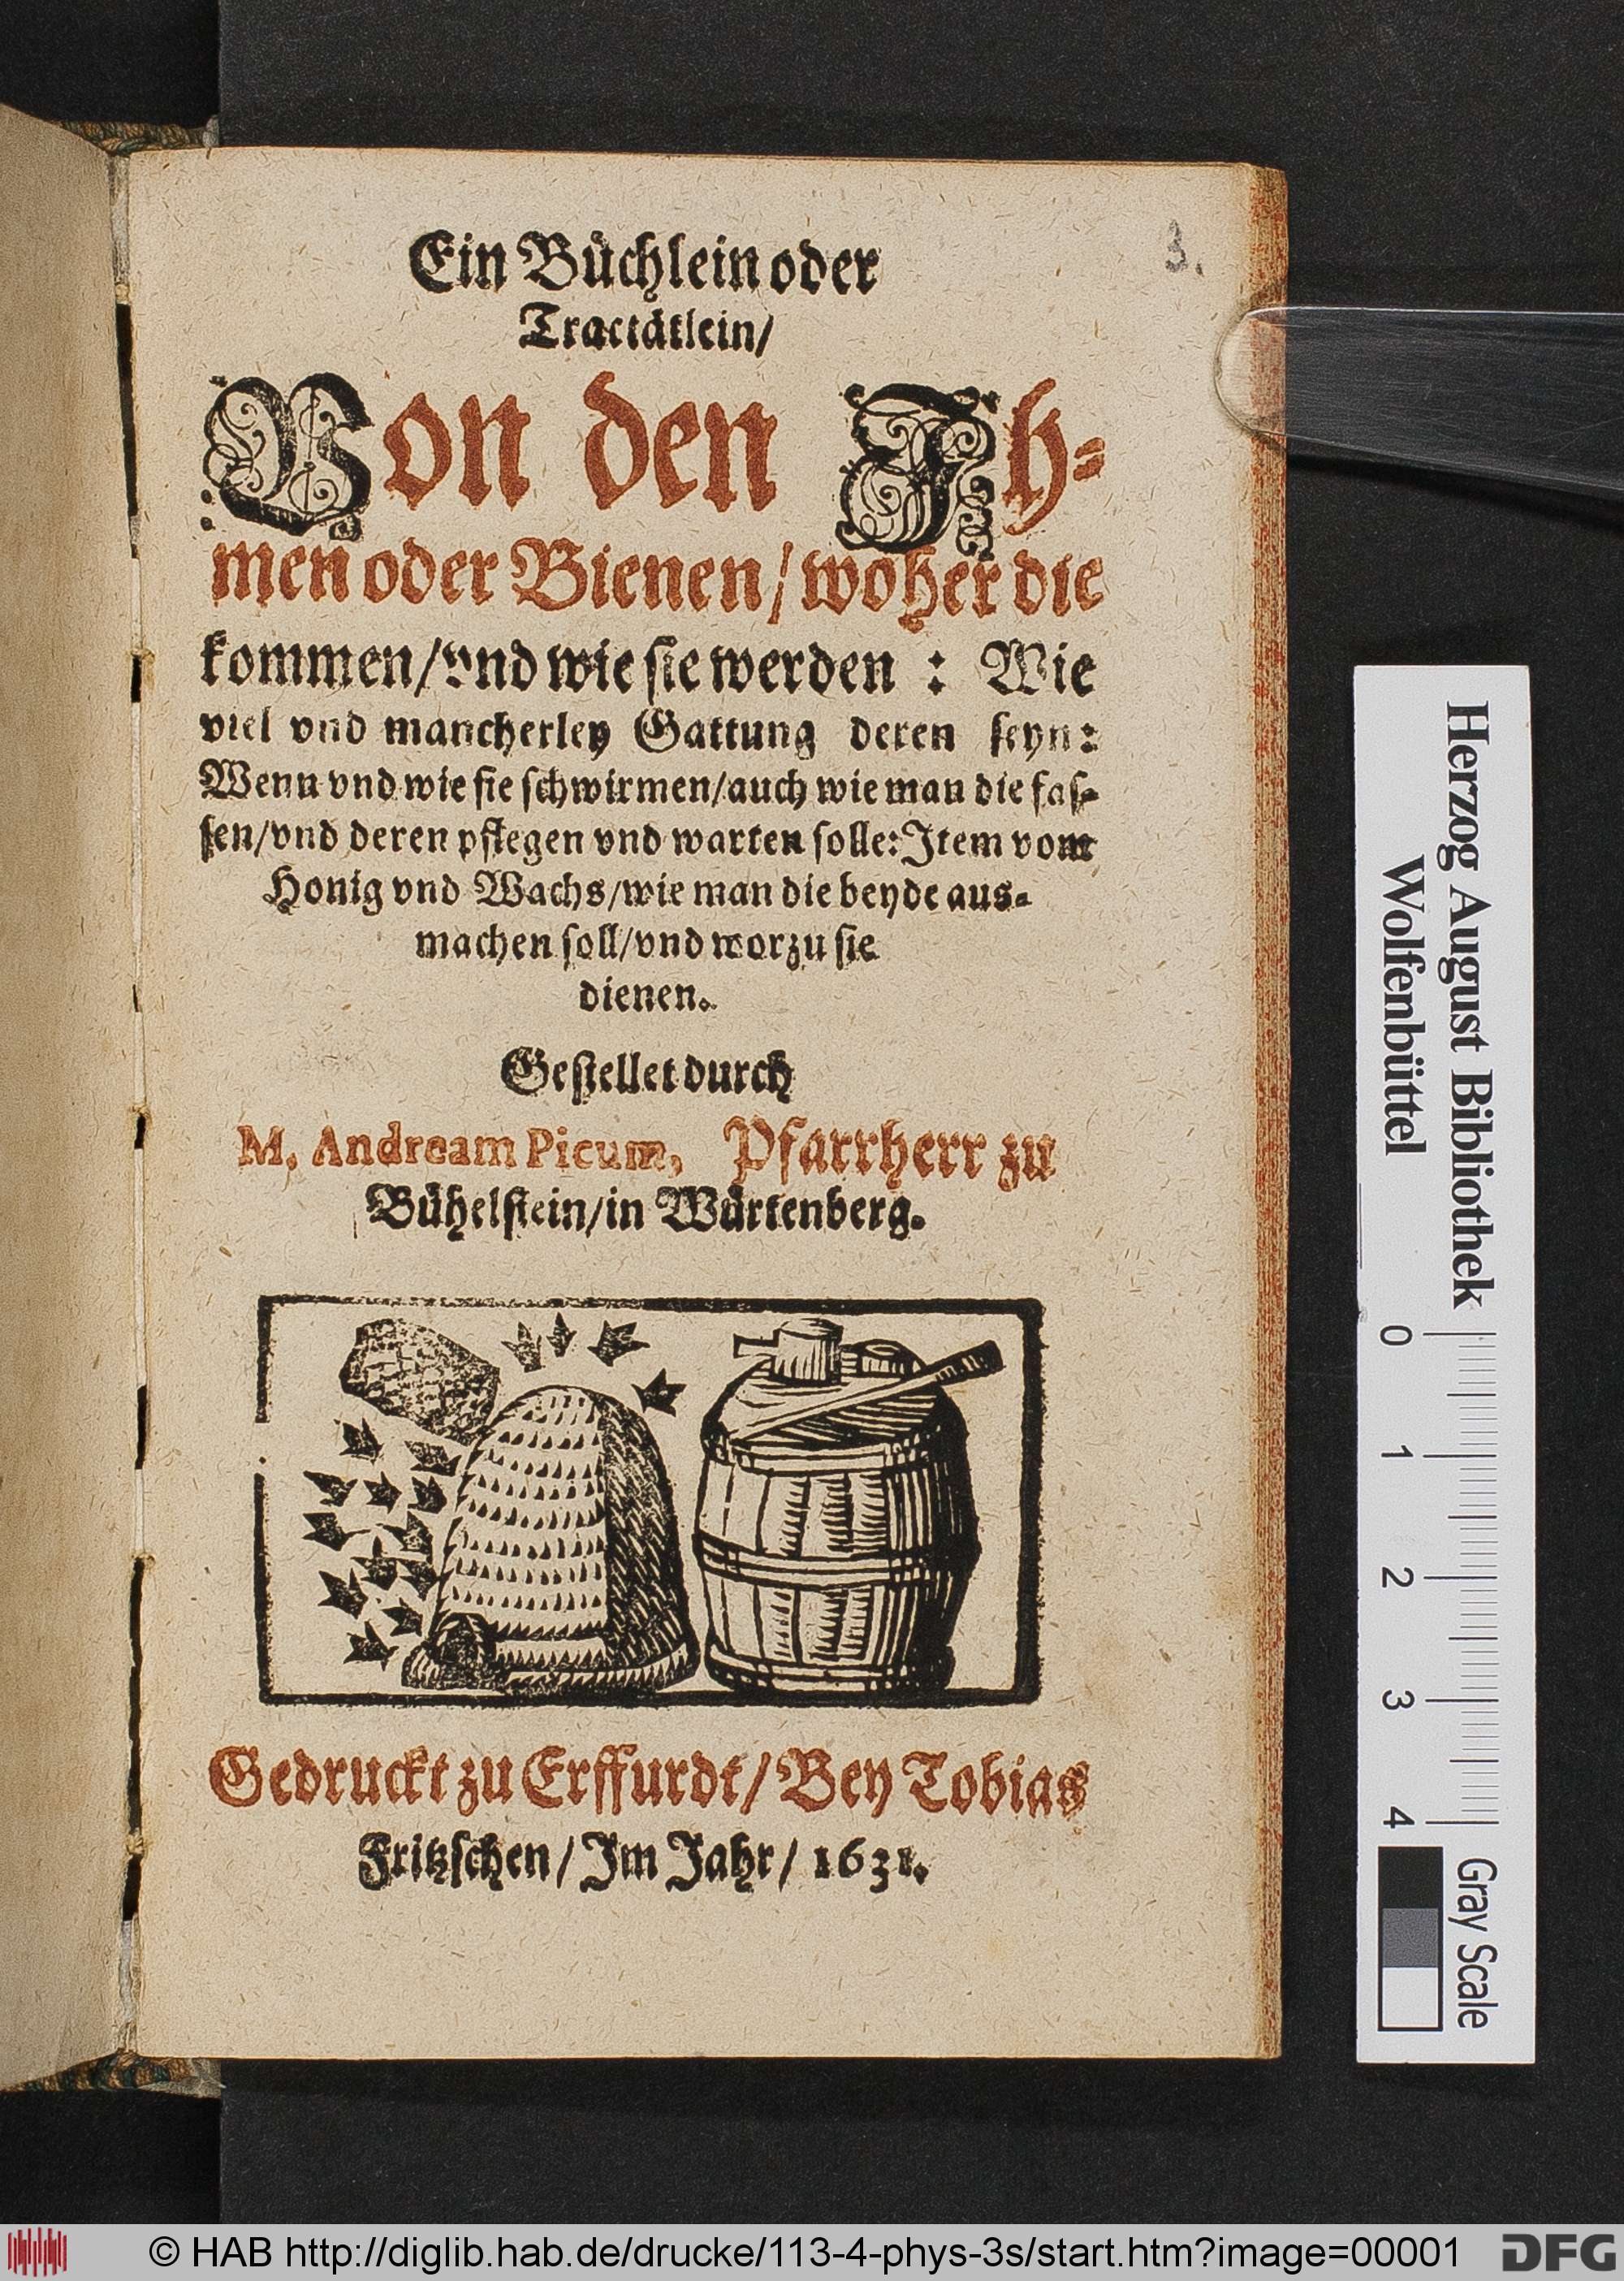 3.
Ein Büchlein oder
Tractätlein/
Von den Ih-
men oder Bienen/woher die
kommen/vnd wie sie werden : Wie
viel vnd mancherley Gattung deren seyn:
Wenn vnd wie sie schwirmen/auch wie man die fas-
sen/vnd deren pflegen vnd warten solle: Item vom
Honig vnd Wachs/wie man die beyde aus-
machen soll/vnd worzu sie
dienen.
Gestellet durch
M. Andream Picum, Pfarrherr zu
Bühelstein/in Würtenberg.
Gedruckt zu Erffurdt/Bey Tobias
Fritzschen/Im Jahr/1631.
Herzog August Bibliothek
Wolfenbüttel
0 1 2 3 4
Gray Scale
© HAB http://diglib.hab.de/drucke/113-4-phys-3s/start.htm?image=00001
DFG